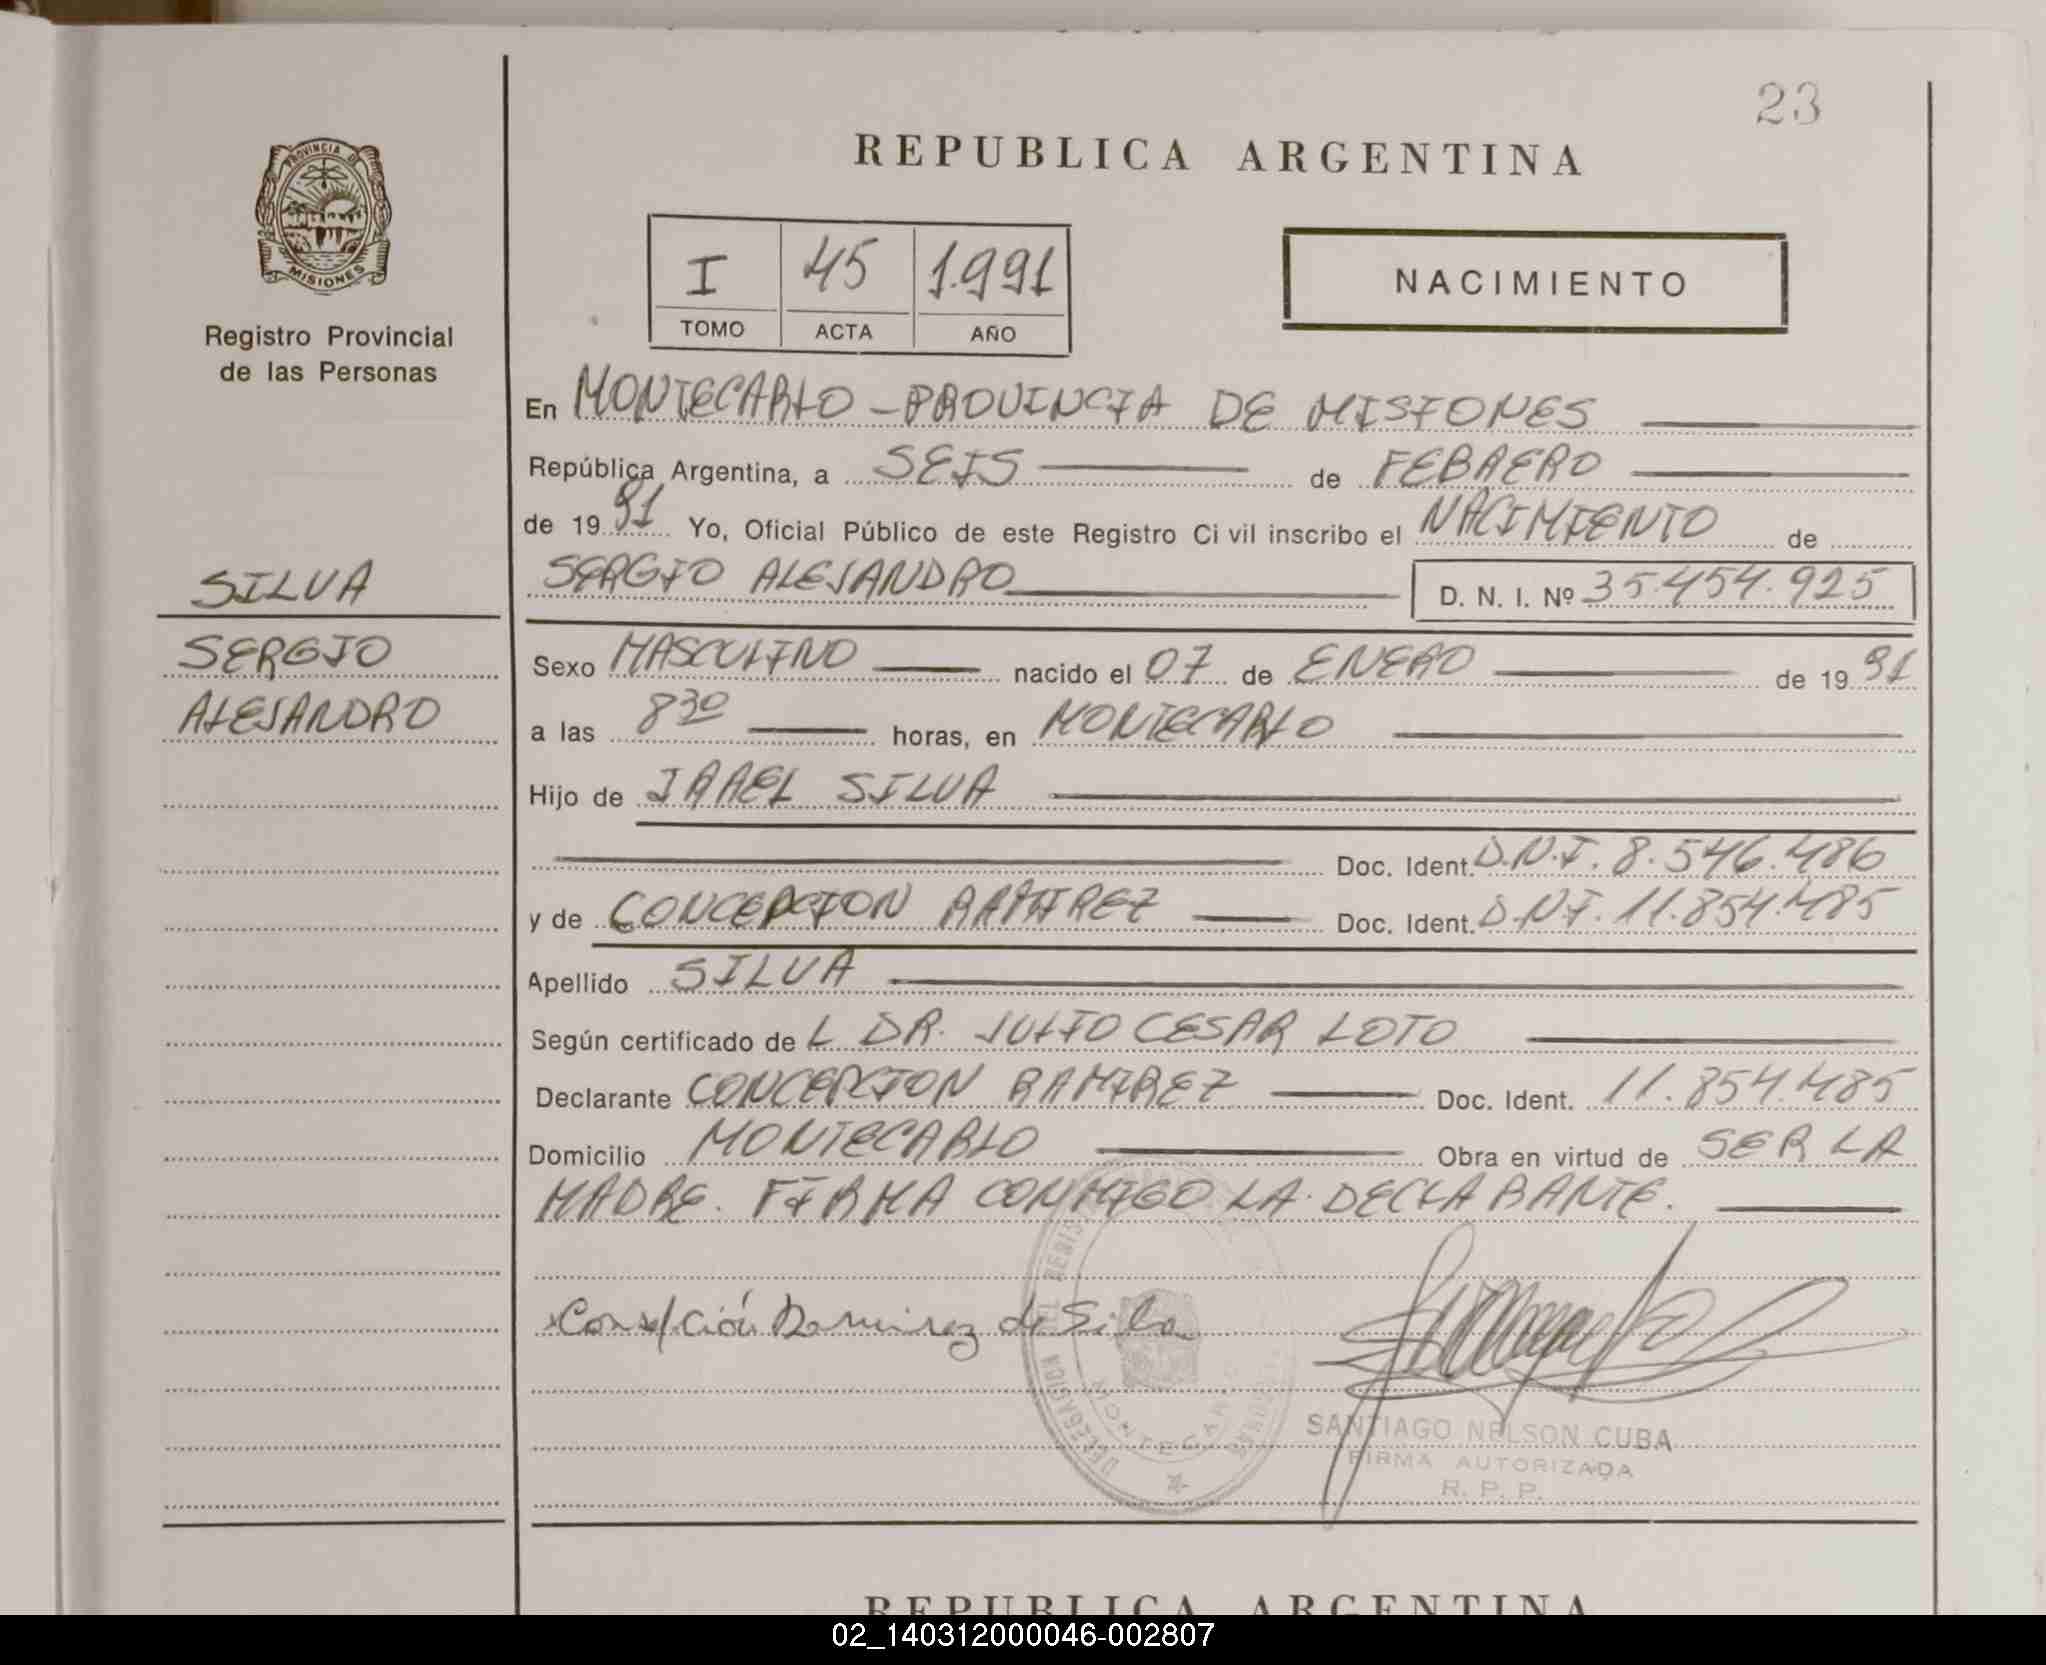 23
REPUBLICA ARGENTINA
PROVINCIA DE
MISIONES
Registro Provincial
de las Personas
I 45 1.991
TOMO ACTA AÑO
NACIMIENTO
En MONTECARLO - PROVINCIA DE MISIONES
República Argentina, a SEIS de FEBRERO
de 19 91 Yo, Oficial Público de este Registro Civil inscribo el NACIMIENTO de
SERGIO ALEJANDRO D. N. I. Nº 35.454.925
SILVA
SERGIO
ALEJANDRO
Sexo MASCULINO nacido el 07 de ENERO de 19 91
a las 8³⁰ horas, en MONTECARLO
Hijo de IRAEL SILVA
Doc. Ident. D.N.I. 8.546.486
y de CONCEPCION RAMIREZ Doc. Ident. D.N.I. 11.854.485
Apellido SILVA
Según certificado de L DR. JULIO CESAR LOTO
Declarante CONCEPCION RAMIREZ Doc. Ident. 11.854.485
Domicilio MONTECARLO Obra en virtud de SER LA
MADRE. FIRMA CONMIGO LA DECLARANTE.
Ramirez de Silva
DELEGACION DEL
MONTECARLO
SANTIAGO NELSON CUBA
FIRMA AUTORIZADA
R. P. P.
REPUBLICA ARGENTINA
02_140312000046-002807